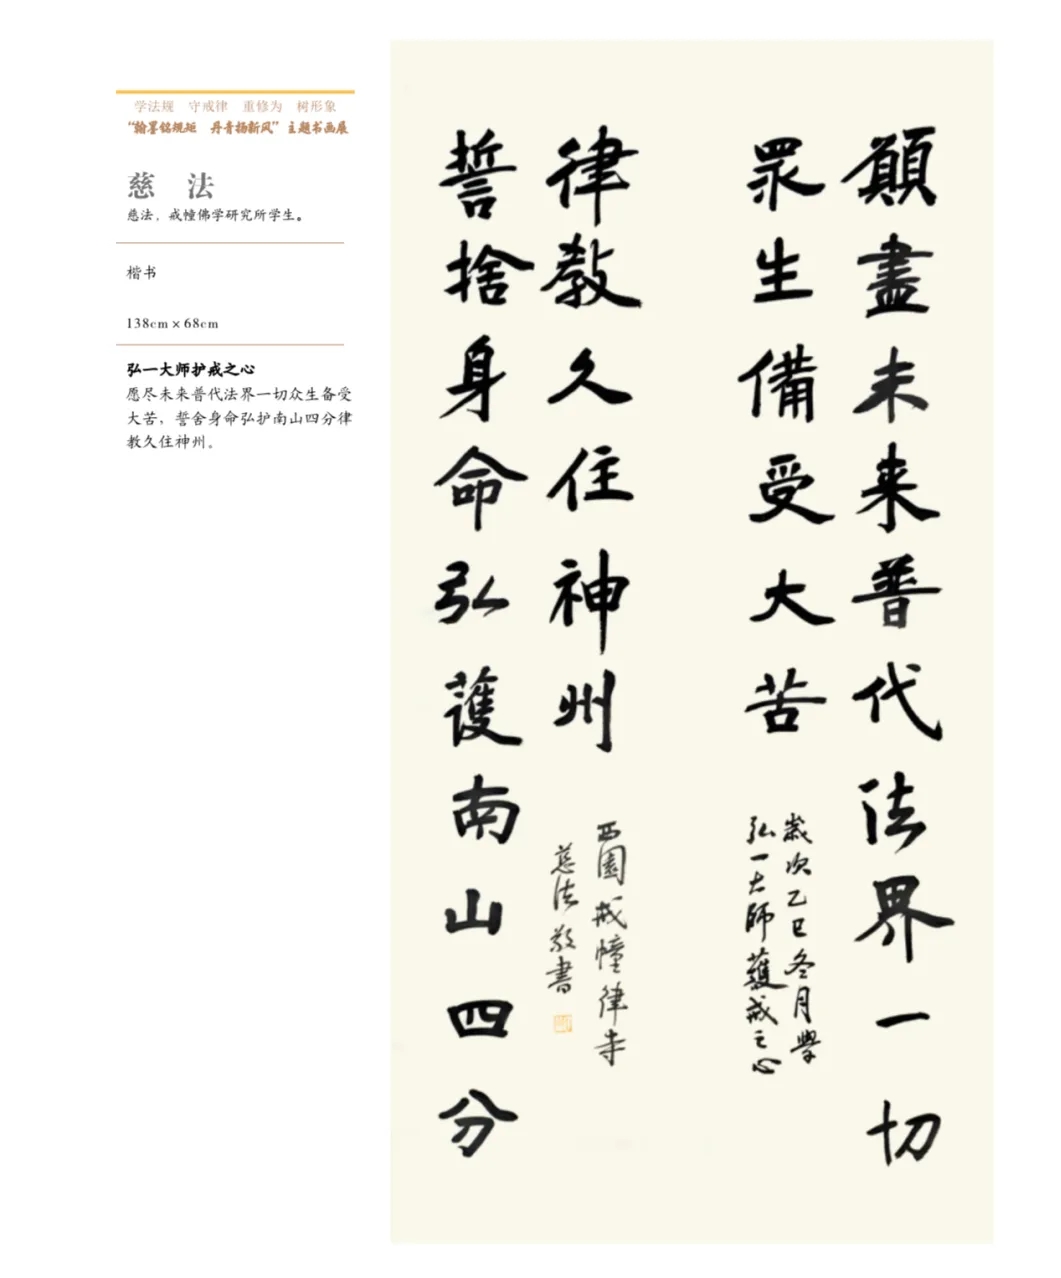 学法规 守戒律 重修为 树形象
“翰墨铭规矩 丹青扬新风”主题书画展
慈 法
慈法，戒幢佛学研究所学生。
楷书
138cm×68cm
弘一大师护戒之心
愿尽未来普代法界一切众生备受
大苦，誓舍身命弘护南山四分律
教久住神州。
願盡未来普代法界一切
眾生備受大苦
歲次乙巳冬月學
弘一大師護戒之心
律教久住神州
誓捨身命弘護南山四分
西園戒幢律寺
慈法敬書